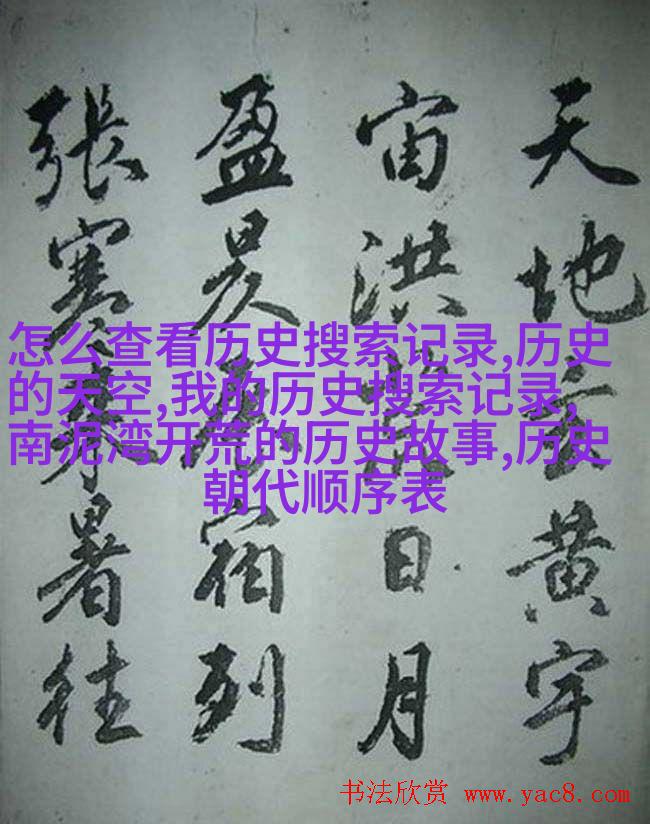 天地玄黄宇
宙洪荒日月
盈昃辰宿列
張寒來暑往
怎么查看历史搜索记录,历史
的天空,我的历史搜索记录,
南泥湾开荒的历史故事,历史
朝代顺序表
书法欣赏 www.yac8.com